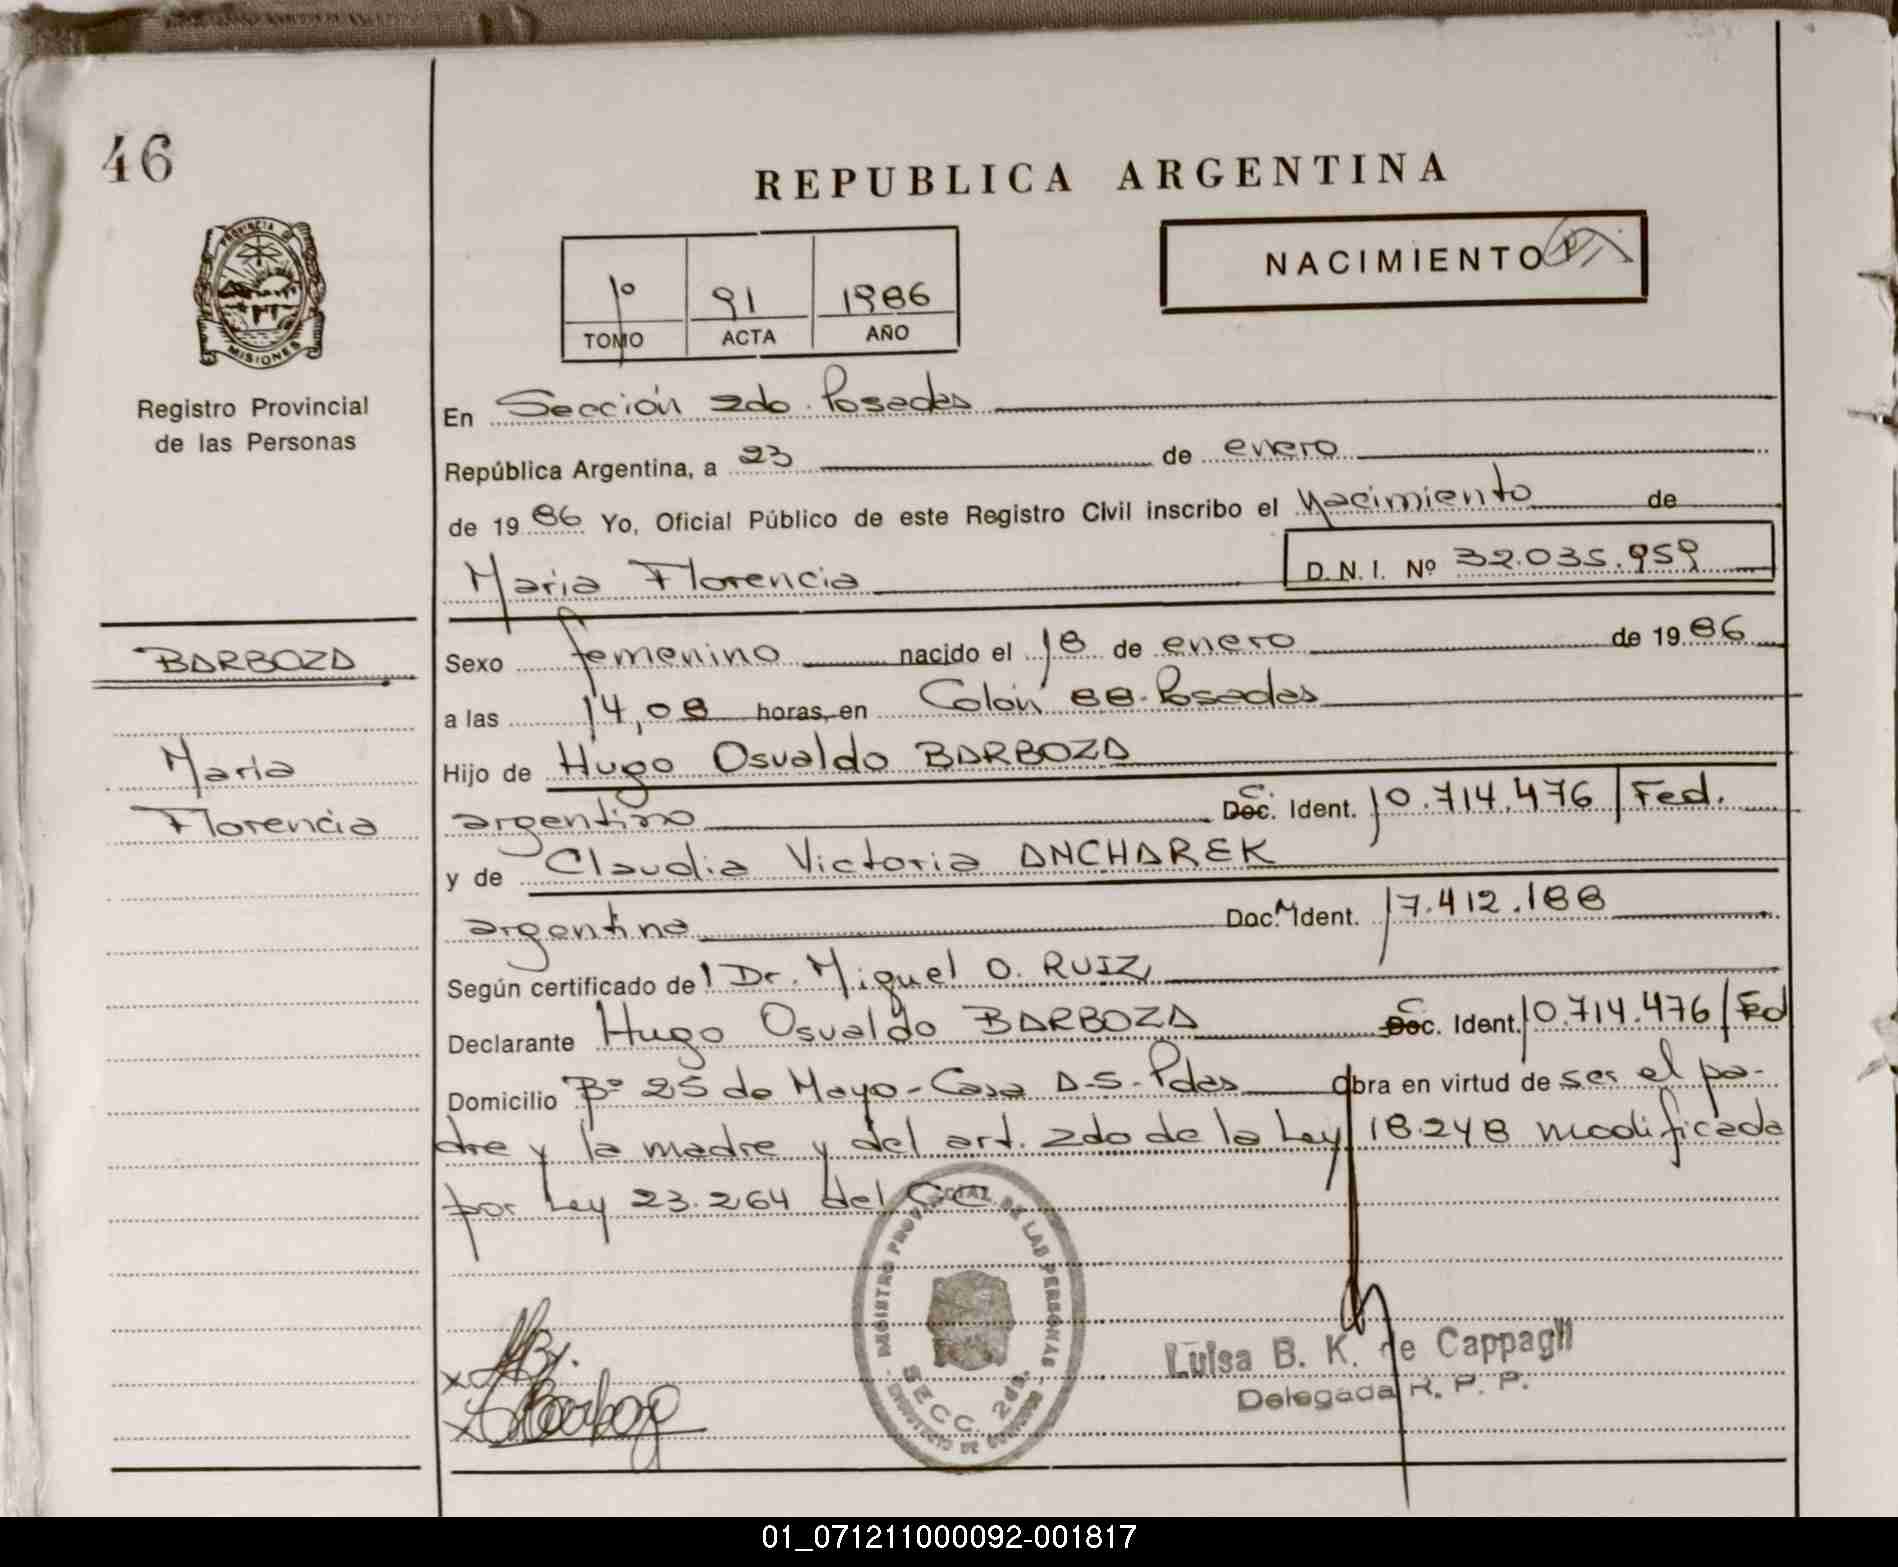 46
REPUBLICA ARGENTINA
PROVINCIA D
MISIONES
Registro Provincial
de las Personas
1º 91 1986
TOMO ACTA AÑO
NACIMIENTO
En Sección 2da. Posadas
República Argentina, a 23 de enero
de 1986 Yo, Oficial Público de este Registro Civil inscribo el Nacimiento de
Maria Florencia D.N.I. Nº 32.035.959
BARBOZA
Maria
Florencia
Sexo femenino nacido el 18 de enero de 1986
a las 14,08 horas, en Colón 88-Posadas
Hijo de Hugo Osvaldo BARBOZA
argentino Doc. C. Ident. 10.714.476/Fed.
y de Claudia Victoria ANCHAREK
argentina Doc. N Ident. 17.412.188
Según certificado del Dr. Miguel O. RUIZ,
Declarante Hugo Osvaldo BARBOZA Doc. C Ident. 10.714.476/Fed
Domicilio Bº 25 de Mayo-Casa A-5-Pdas Obra en virtud de ser el pa-
dre y la madre y del art. 2do de la Ley 18.248 modificada
por Ley 23.264 del CC
REGISTRO PROVINCIAL DE LAS PERSONAS
SECC. 2da.
Barboza
Luisa B. K. de Cappagli
Delegada R. P. P.
01_071211000092-001817